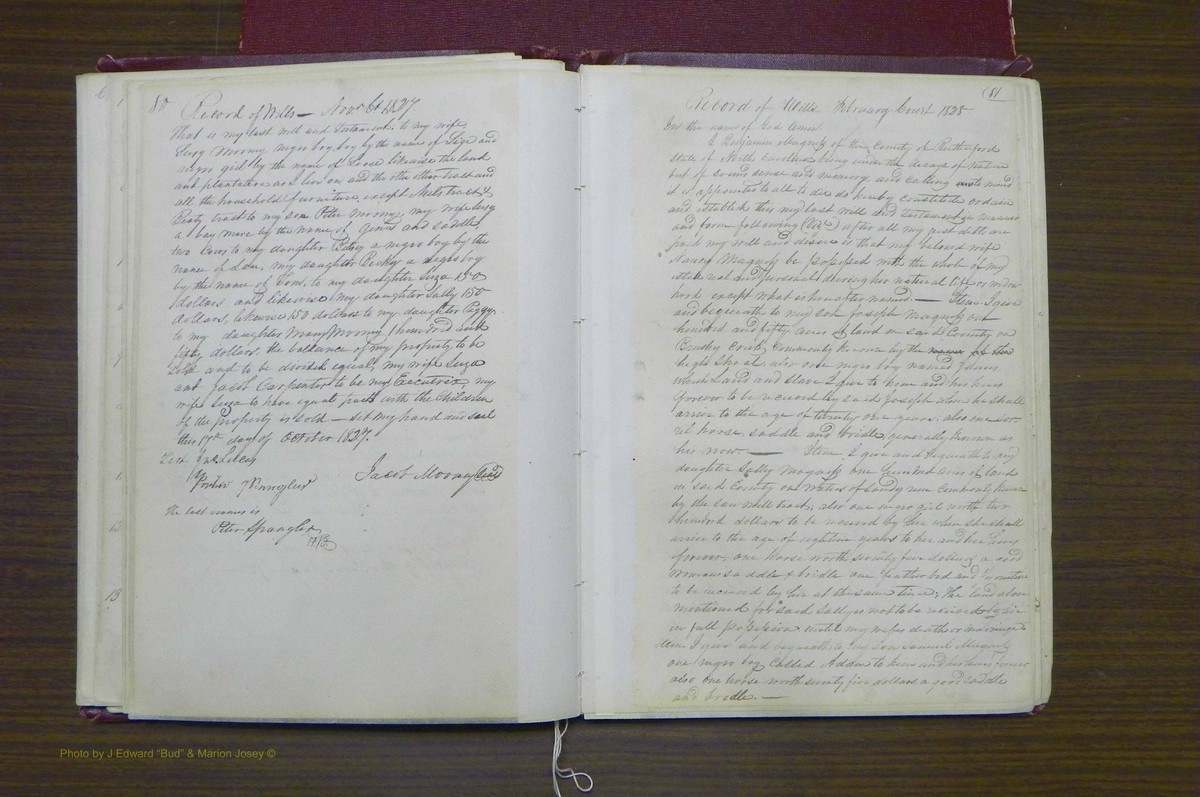 80 Record of Wills — Novr Ct 1827
That is my last will and Testament. to my wife
Suzy Mooney negro boy, boy by the name of and
negro girl by the name of likewise the land
and plantation as I live on and the other tract and
all the household furniture, except
tract to my son Peter Mooney, my wife Suza
a bay mare by the name of and saddle
two to my daughter Betsy a negro boy by the
name of my daughter Becky a negro boy
by the name of Tom. to my daughter Suza 150
dollars and likewise my daughter Sally 150
dollars, likewise 150 dollars to my daughter Peggy.
to my daughter Mary Mooney 1 hundred and
fifty dollars. the ballance of my property to be
sold and to be divided equal, my wife Suza
and Jacob Carpenter to be my Executrix my
wife Suza to have equal part with the Children
of the property is sold — set my hand and seal
this 17th day of October 1827.
Test
Jacob Mooney (Seal)
the last name is
Peter Spangler
81
Record of Wills February Court 1828
In the name of God Amen
I Benjamin Magness of the County of Rutherford
State of North Carolina being under the decays of Nature
but of sound sense and memory and calling into mind
it is appointed to all to die do hereby constitute ordain
and establish this my last will and testament in manner
and form following (Viz) after all my just debts are
paid my will and desire is that my beloved wife
Nancy Magness be possessed with the whole of my
estate real and personal during her natural life or widow
hood except what is hereafter named. — Item. I give
and bequeath to my son Joseph Magness one
hundred and fifty acres of land in said County on
Brushy Creek, commonly known by the
also one negro boy named
which Land and Slave I give to him and his heirs
forever to be received by said Joseph when he shall
arrive to the age of twenty one years. also one sor-
rel horse, saddle and bridle generally known as
his now — Item I give and bequeath to my
daughter Sally Magness one hundred acres of land
in said County on waters of Sandy run commonly known
by the saw mill tract, also one negro girl worth two
hundred dollars to be received by her when she shall
arrive to the age of eighteen years to her and her heirs
forever, one Horse worth seventy five dollars a good
womans saddle & bridle one feather bed and furniture
to be received by her at the same time; the land above
mentioned for said Sally is not to be received by her
in full possession until my wifes death or marriage
Item. I give and bequeath to my son Samuel Magness
one negro boy called Adam to him and his heirs forever
also one horse worth seventy five dollars a good saddle
and bridle. —
Photo by J Edward "Bud" & Marion Josey ©